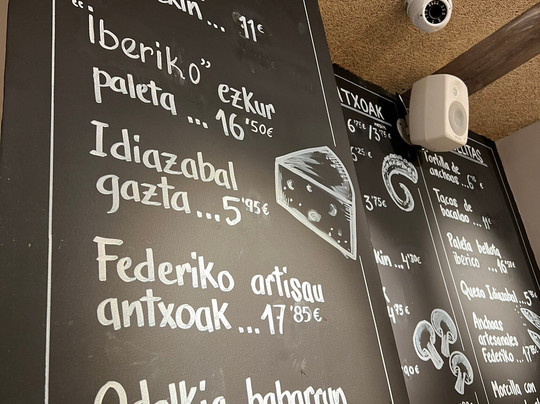 ...11€
"iberiko" ezkur
paleta ... 16'50€
Idiazabal
gazta ... 5'95€
Federiko artisau
antxoak ... 17'85€
Odolkia babarrun
TXOAK
3'75€
kin ... 4'30€
Tortilla de
anchoas ... 6'
Tacos de
bacalao ... 11€
Paleta bellota
iberico ... 16'50€
Queso Idiazabal ... 5'95
Anchoas
artesanales
Federiko ... 17'85
Morcilla con